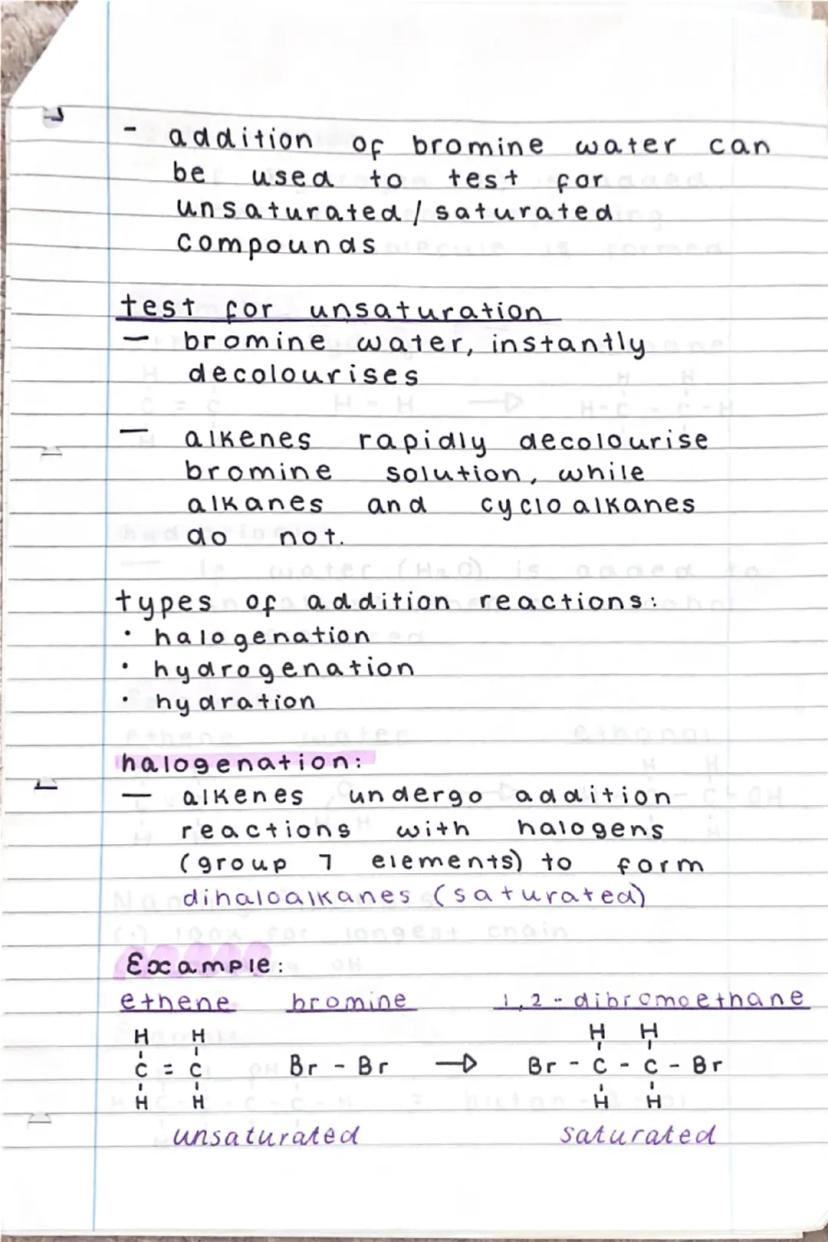 - addition of bromine water can
be used to test for
unsaturated/saturated
compounds
test for unsaturation
— bromine water, instantly
decolourises
— alkenes rapidly decolourise
bromine solution, while
alkanes and cycloalkanes
do not.
types of addition reactions:
• halogenation
• hydrogenation
• hydration
halogenation:
— alkenes undergo addition
reactions with halogens
(group 7 elements) to form
dihaloalkanes (saturated)
Example:
ethene bromine 1,2-dibromoethane
H H H H
C = C Br - Br → Br - C - C - Br
H H H H
unsaturated saturated